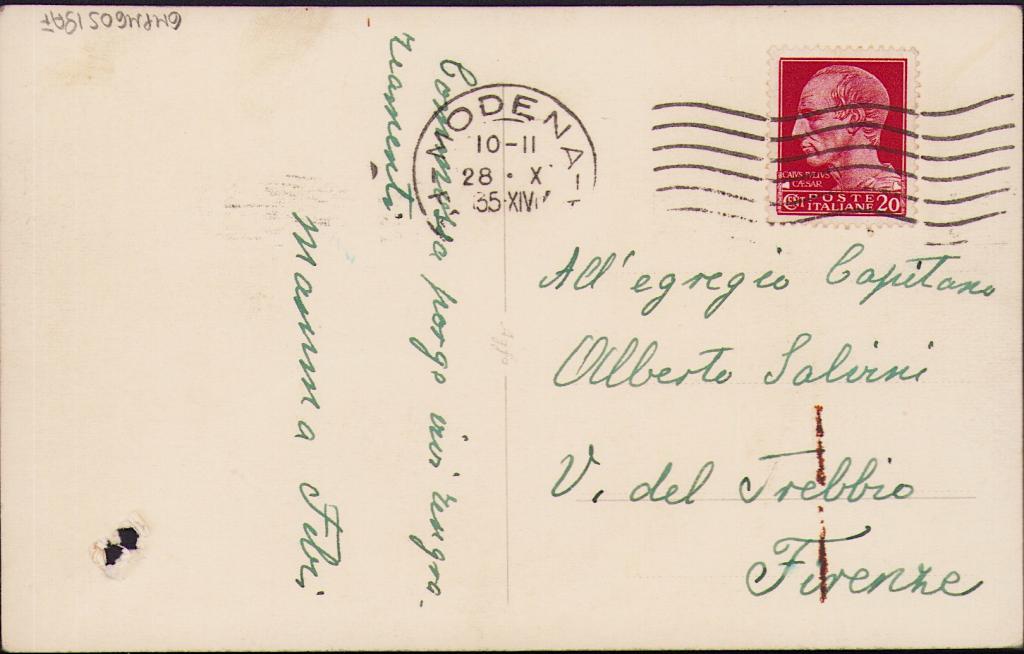 Commossa porgo vivi ringra-
ziamenti
Mamma Fibi
MODENA
10-11
28 · X
35·XIV
CAIVS IVLIVS
CAESAR
CENT POSTE
ITALIANE 20
All'egregio Capitano
Alberto Salvini
V. del Trebbio
Firenze